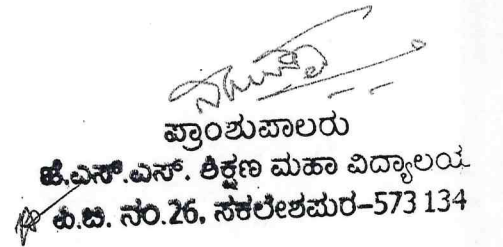 ಪ್ರಾಂಶುಪಾಲರು
ಜೆ.ಎಸ್.ಎಸ್. ಶಿಕ್ಷಣ ಮಹಾ ವಿದ್ಯಾಲಯ
ಪಿ.ಬಿ. ನಂ.26, ಸಕಲೇಶಪುರ-573 134